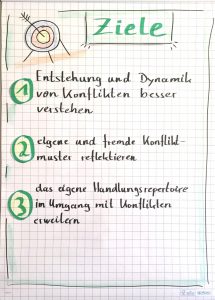 Ziele
1 Entstehung und Dynamik
von Konflikten besser
verstehen
2 eigene und fremde Konflikt-
muster reflektieren
3 das eigene Handlungsrepertoire
im Umgang mit Konflikten
erweitern